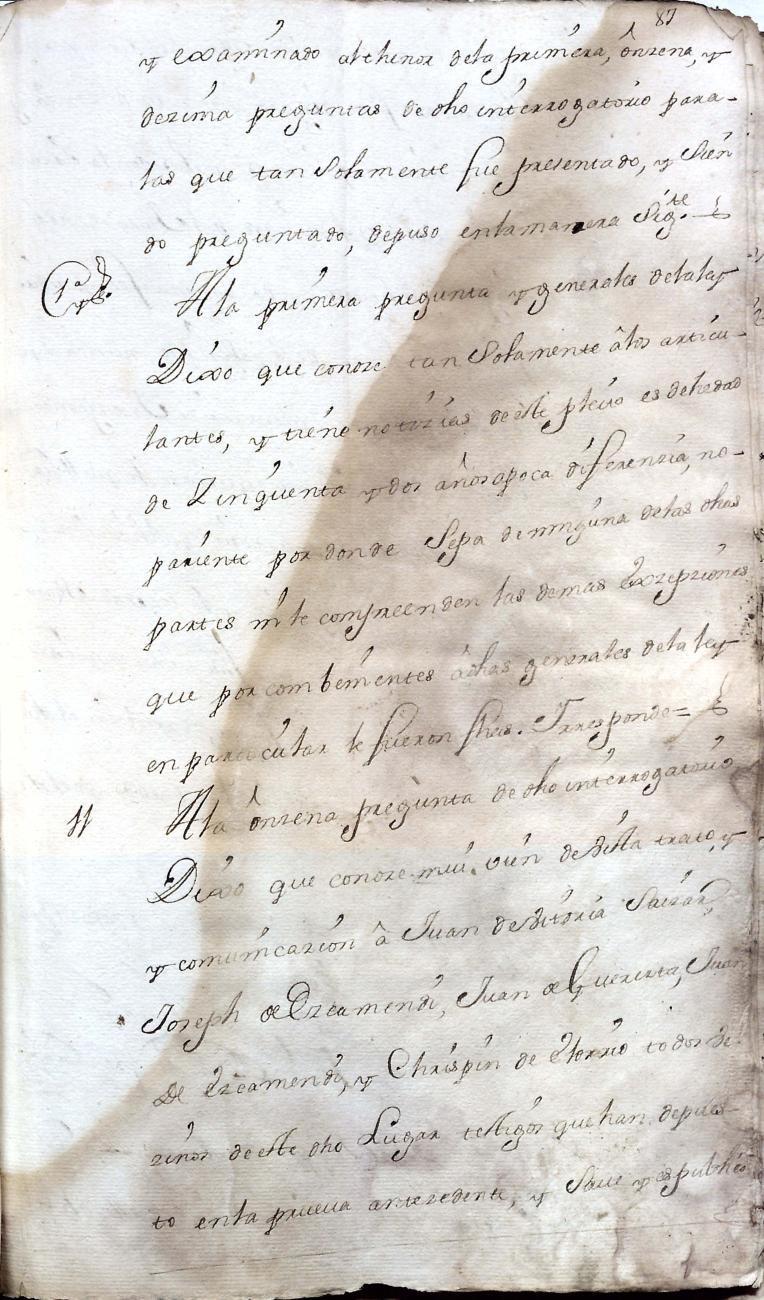 87
y examinado al thenor dela primera, ônzena, y
dezima preguntas de dho interrogatorio para-
las que tan Solamente fue presentado, y Sien
do preguntado, depuso enlamanera Sigte.
1a A la primera pregunta y generales delaley
Dixo que conoze tan Solamente âlos articu-
lantes, y tiene notizias de este pleito es dehedad
de Zinquenta y dos años apoca diferenzia, no-
pariente por donde Sepa de ninguna delas dhas
partes ni le compreenden las demas exzepziones
que por combenientes âdhas generales dela ley
en particular le fueron fhas. Yrresponde=
11 A la ônzena pregunta de dho interrogatorio
Dixo que conoze mui vien de vista trato, y
y comunicazion â Juan de Vitoria Saizar,
Joseph de Ezcamendi, Juan de Guerezta, Juan
de Ezcamendi, y Chrispin de Elorrio todos ve-
zinos de este dho Lugar testigos que han depues-
to enla prueva antezedente, y Save y es publico